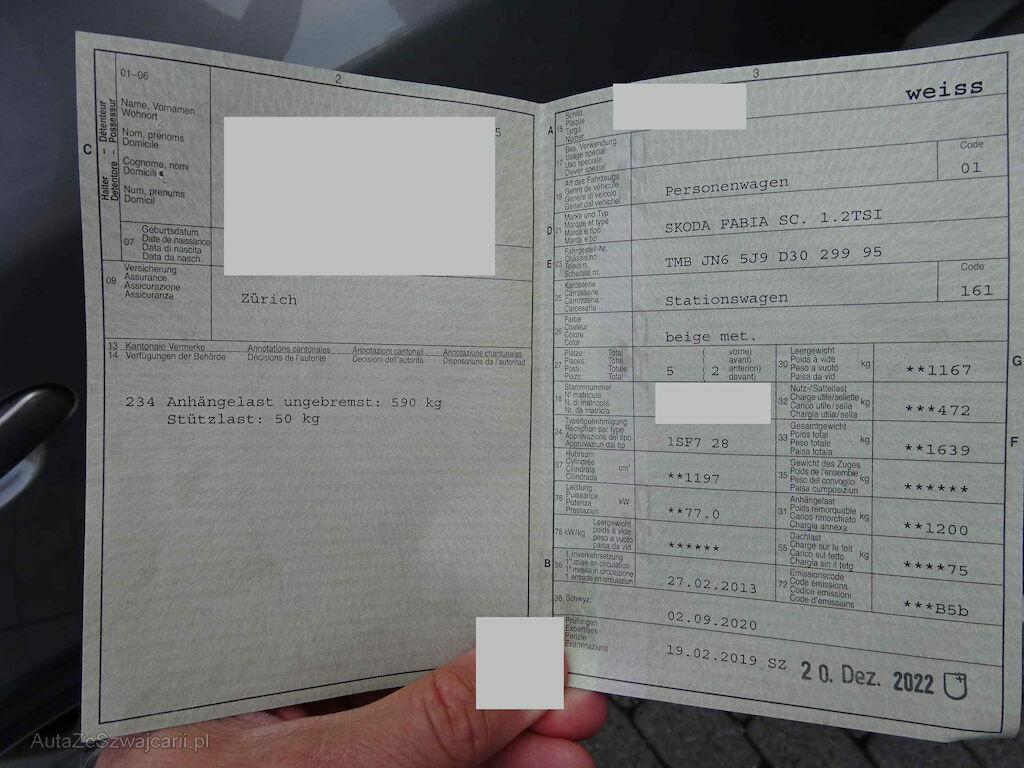 2
01-06
C
Halter – Détenteur
Detentore – Possessur
Name, Vornamen
Wohnort
Nom, prénoms
Domicile
Cognome, nomi
Domicilio
Num, prenums
Domicil
5
07
Geburtsdatum
Date de naissance
Data di nascita
Data da nasch.
09
Versicherung
Assurance
Assicurazione
Assicuranza
Zürich
13 Kantonale Vermerke Annotations cantonales Annotazioni cantonali Annotaziuns chantunalas
14 Verfügungen der Behörde Décisions de l'autorité Decisioni dell'autorità Disposiziuns da l'autoritad
234 Anhängelast ungebremst: 590 kg
Stützlast: 50 kg
3
A 15
Schild
Plaque
Targa
Numer
weiss
17
Bes. Verwendung
Usage spécial
Uso speciale
Diever spezial
Code
19
Art des Fahrzeugs
Genre de véhicule
Genere di veicolo
Gener dal vehichel
Personenwagen
01
D 21
Marke und Typ
Marque et type
Marca e tipo
Marca e tip
SKODA FABIA SC. 1.2TSI
E 23
Fahrgestell-Nr.
Châssis no
Telaio n.
Schassis nr.
TMB JN6 5J9 D30 299 95
25
Karosserie
Carrosserie
Carrozzeria
Carossaria
Stationswagen
Code
161
26
Farbe
Couleur
Colore
Colur
beige met.
27
Plätze: Total
Places: Total
Posti: Totale
Plazs: Total
5
( 2
vorne)
avant)
anteriori)
davant)
30
Leergewicht
Poids à vide
Peso a vuoto
Paisa da vid
kg
**1167
G
18
Stammnummer
N° matricule
N. di matricola
Nr. da matricla
32
Nutz-/Sattellast
Charge utile/sellette
Carico utile/sella
Chargia utila/sella
kg
***472
24
Typengenehmigung
Réception par type
Approvazione del tipo
Approvaziun dal tip
1SF7 28
33
Gesamtgewicht
Poids total
Peso totale
Paisa totala
kg
**1639
F
37
Hubraum
Cylindrée
Cilindrata
Cilindrada
cm³
**1197
35
Gewicht des Zuges
Poids de l'ensemble
Peso del convoglio
Paisa cumposiziun
kg
******
76
Leistung
Puissance
Potenza
Prestaziun
kW
**77.0
31
Anhängelast
Poids remorquable
Carico rimorchiato
Chargia annexa
kg
**1200
78 kW/kg
Leergewicht
poids à vide
peso a vuoto
paisa da vid
******
55
Dachlast
Charge sur le toit
Carico sul tetto
Chargia sin il tetg
kg
****75
B 36
1. Inverkehrsetzung
1re mise en circulation
1a messa in circolazione
1. entrada en circulaziun
27.02.2013
72
Emissionscode
Code émissions
Codice emissioni
Code d'emissiuns
***B5b
38
Schwyz,
02.09.2020
Prüfungen
Expertises
Perizie
Examinaziuns
19.02.2019 SZ
20. Dez. 2022
AutaZeSzwajcarii.pl